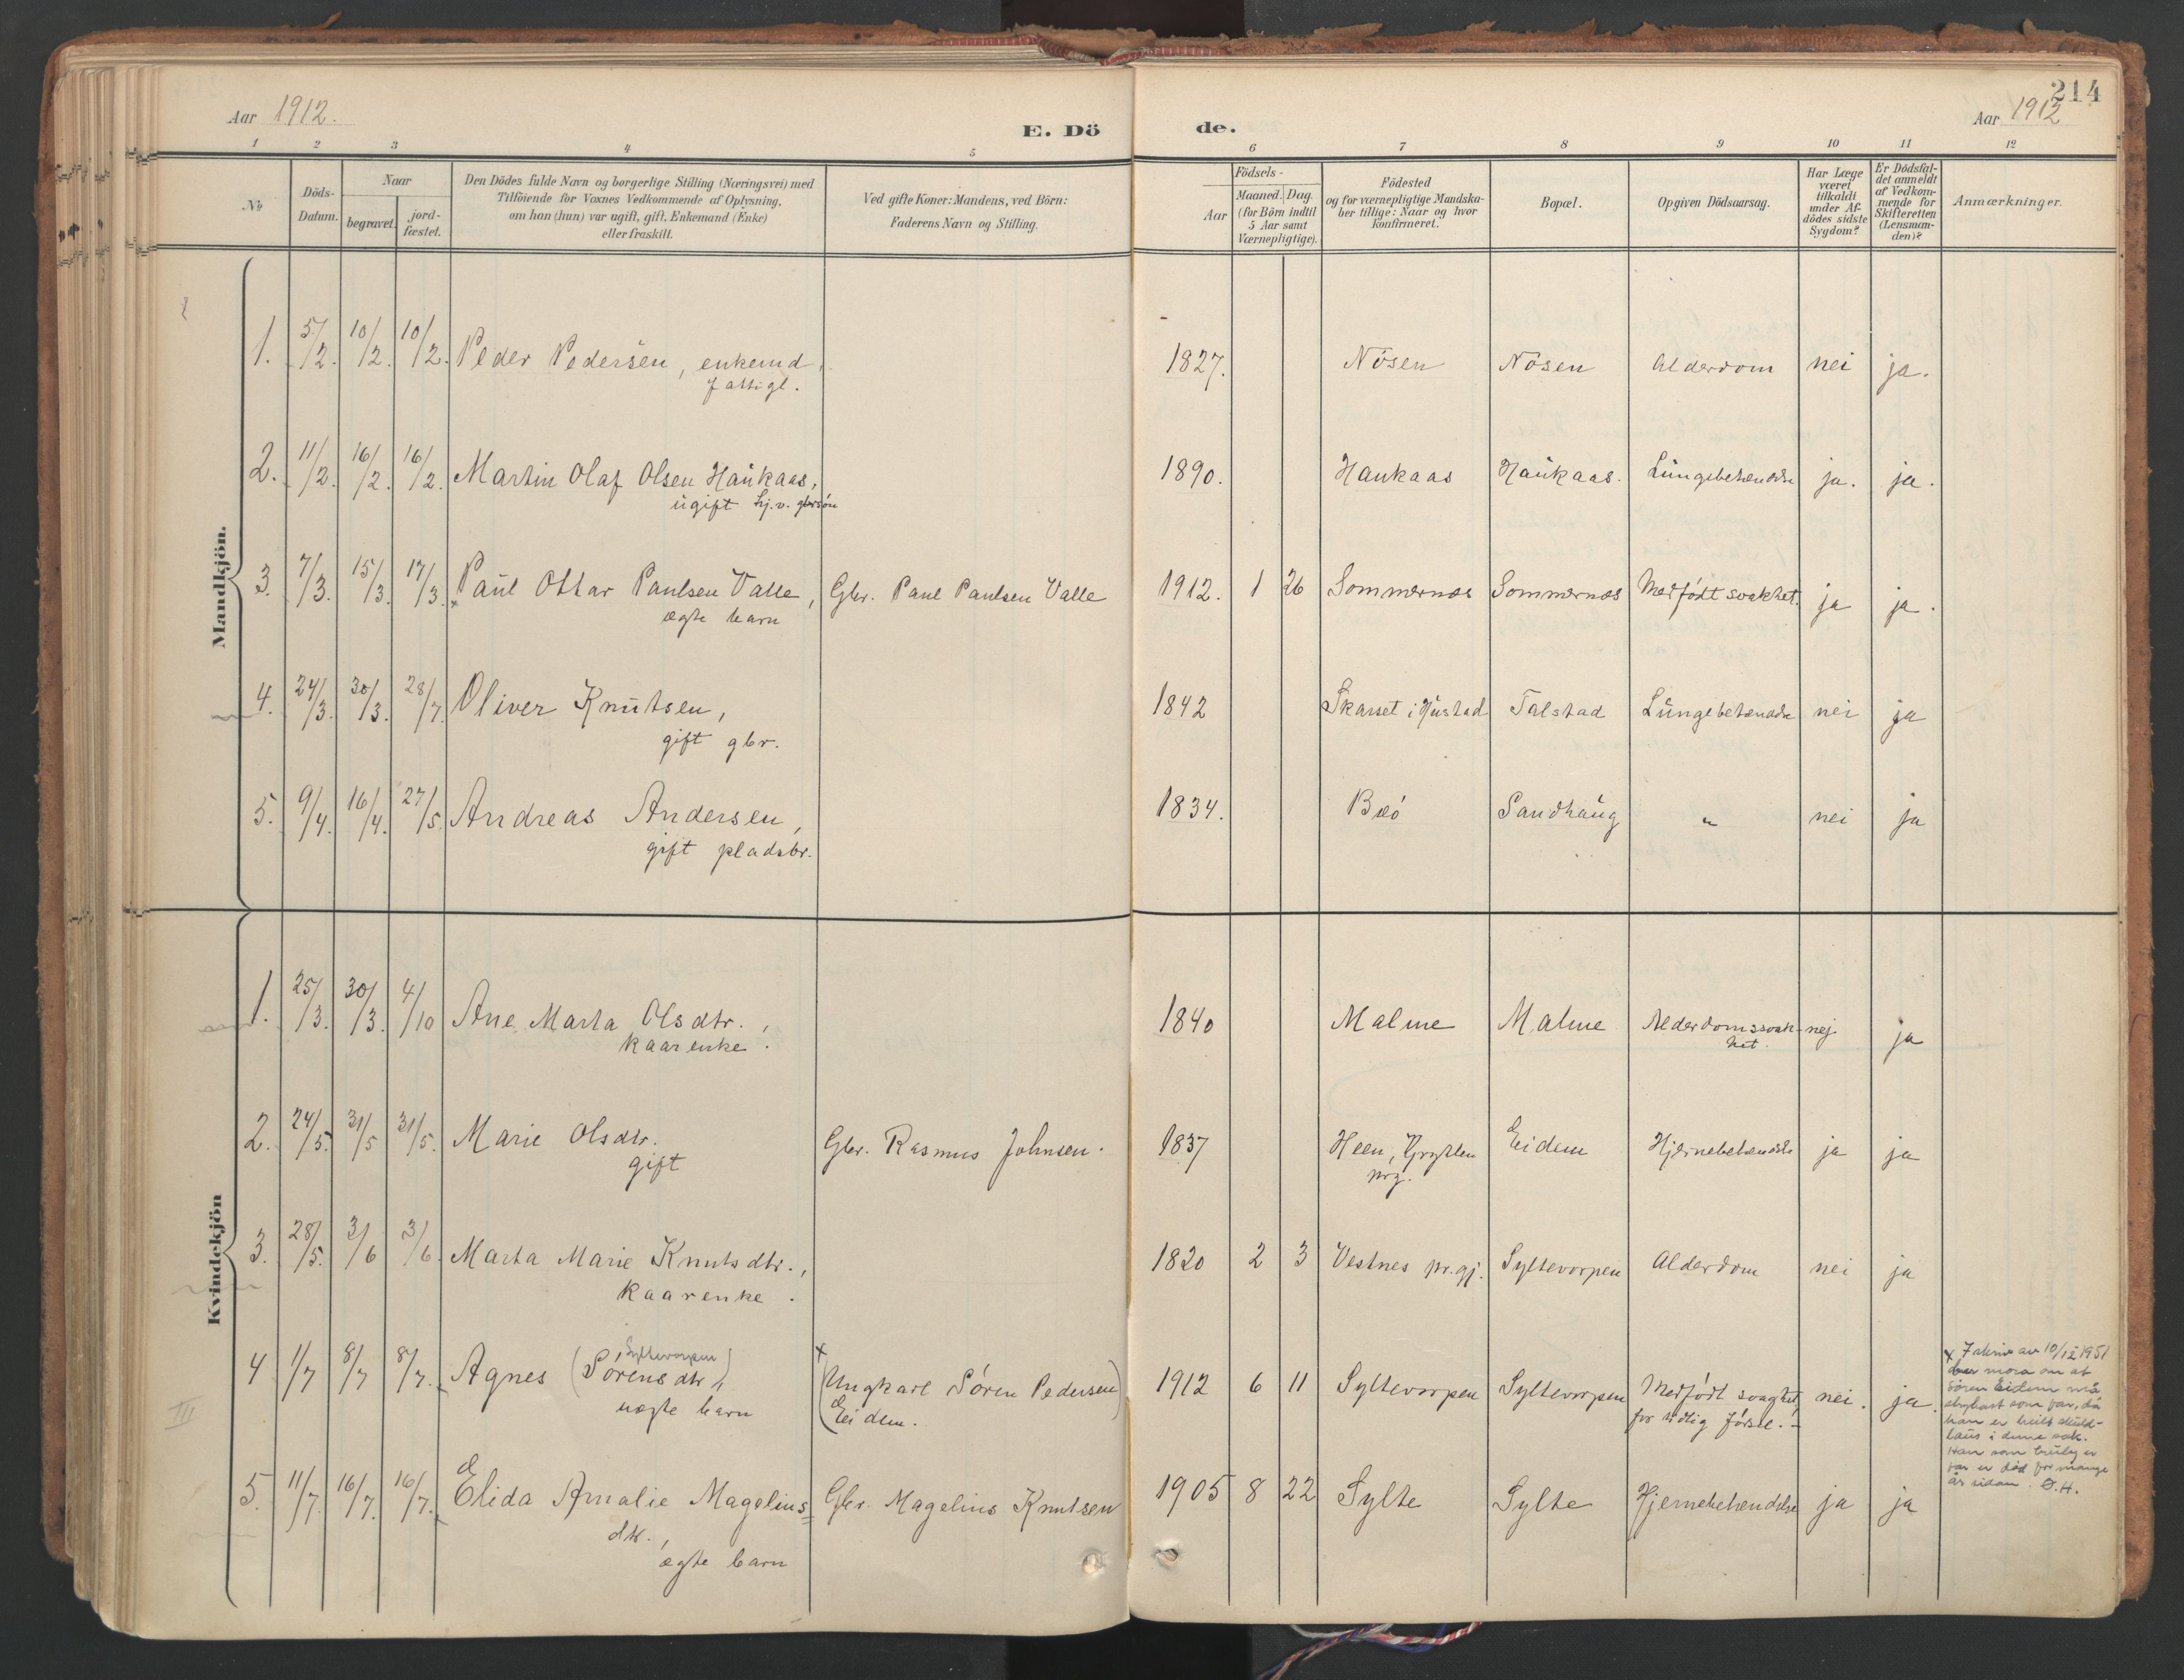 214
Aar 1912.
E. Dö
de.
Aar 1912
1 2 3 4 5 6 7 8 9 10 11 12
No
Döds-
Datum.
Naar
begravet.
jord-
fæstet.
Den Dödes fulde Navn og borgerlige Stilling (Næringsvei) med
Tilföiende for Voxnes Vedkommende af Oplysning,
om han (hun) var ugift, gift, Enkemand (Enke)
eller fraskilt.
Ved gifte Koner: Mandens, ved Börn:
Faderens Navn og Stilling.
Födsels-
Aar
Maaned. Dag.
(for Börn indtil
5 Aar samt
Værnepligtige).
Födested
og for værnepligtige Mandska-
ber tillige: Naar og hvor
konfirmeret.
Bopæl.
Opgiven Dödsaarsag.
Har Læge
været
tilkaldt
under Af-
dödes sidste
Sygdom?
Er Dödsfal-
det anmeldt
af Vedkom-
mende for
Skifteretten
(Lensman-
den)?
Anmærkninger.
Mandkjön.
1. 5/2. 10/2. 10/2. Peder Pedersen, enkemd, 1827. Nösen Nösen Alderdom nei ja.
fattigl.
2. 11/2. 16/2. 16/2. Martin Olaf Olsen Haukaas, 1890. Haukaas Haukaas. Lungebetændelse ja. ja.
ugift hj.v. gbrsön
3. 7/3. 15/3. 17/3. Paul Ottar Paulsen Valle, Gbr. Paul Paulsen Valle 1912. 1 26 Sommernes Sommernes Medfödt svakhet. ja ja.
ægte barn
4. 24/3. 30/3. 28/7. Oliver Knutsen, 1842 Skarset i Hustad Talstad Lungebetændelse nei ja
gift gbr.
5. 9/4. 16/4. 27/5. Andreas Andersen, 1834. Bæö Sandhaug " nei ja
gift pladsbr.
Kvindekjön
1. 25/3. 30/3. 4/10 Ane Marta Olsdtr., 1840 Malme Malme Alderdomssvak- nej. ja
kaarenke. het.
2. 24/5. 31/5 31/5. Marie Olsdtr. Gbr. Rasmus Johnsen. 1837 Heen, Grytten Eidem Hjernebetændelse ja ja
gift prg.
3. 28/5. 3/6 3/6. Marta Marie Knutsdtr., 1820 2 3 Vestnes pr.gj. Syltevorpen Alderdom nei ja
kaarenke.
Syltevorpen
4 1/7 8/7 8/7. Agnes (Sörensdtr), x (Ungkarl Sören Pedersen 1912 6 11 Syltevorpen Syltevorpen Medfödt svaghet, nei. ja.
uægte barn Eidem.) for tidlig födsel.
III
x I skriv av 10/12 1951
ber mora om at
Sören Eidem må
strykast som far, då
han er heilt skuld-
laus i denne sak.
Han som truleg er
far er död for mange
år sidan. O.H.
5. 11/7. 16/7. 16/7. Elida Amalie Magelius= Gbr. Magelius Knutsen 1905 8 22 Sylte Sylte Hjernebetendelse ja ja
dtr.,
ægte barn